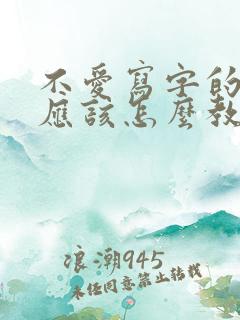 不愛寫字的
應該怎麼教
浪潮945
未经同意禁止转载